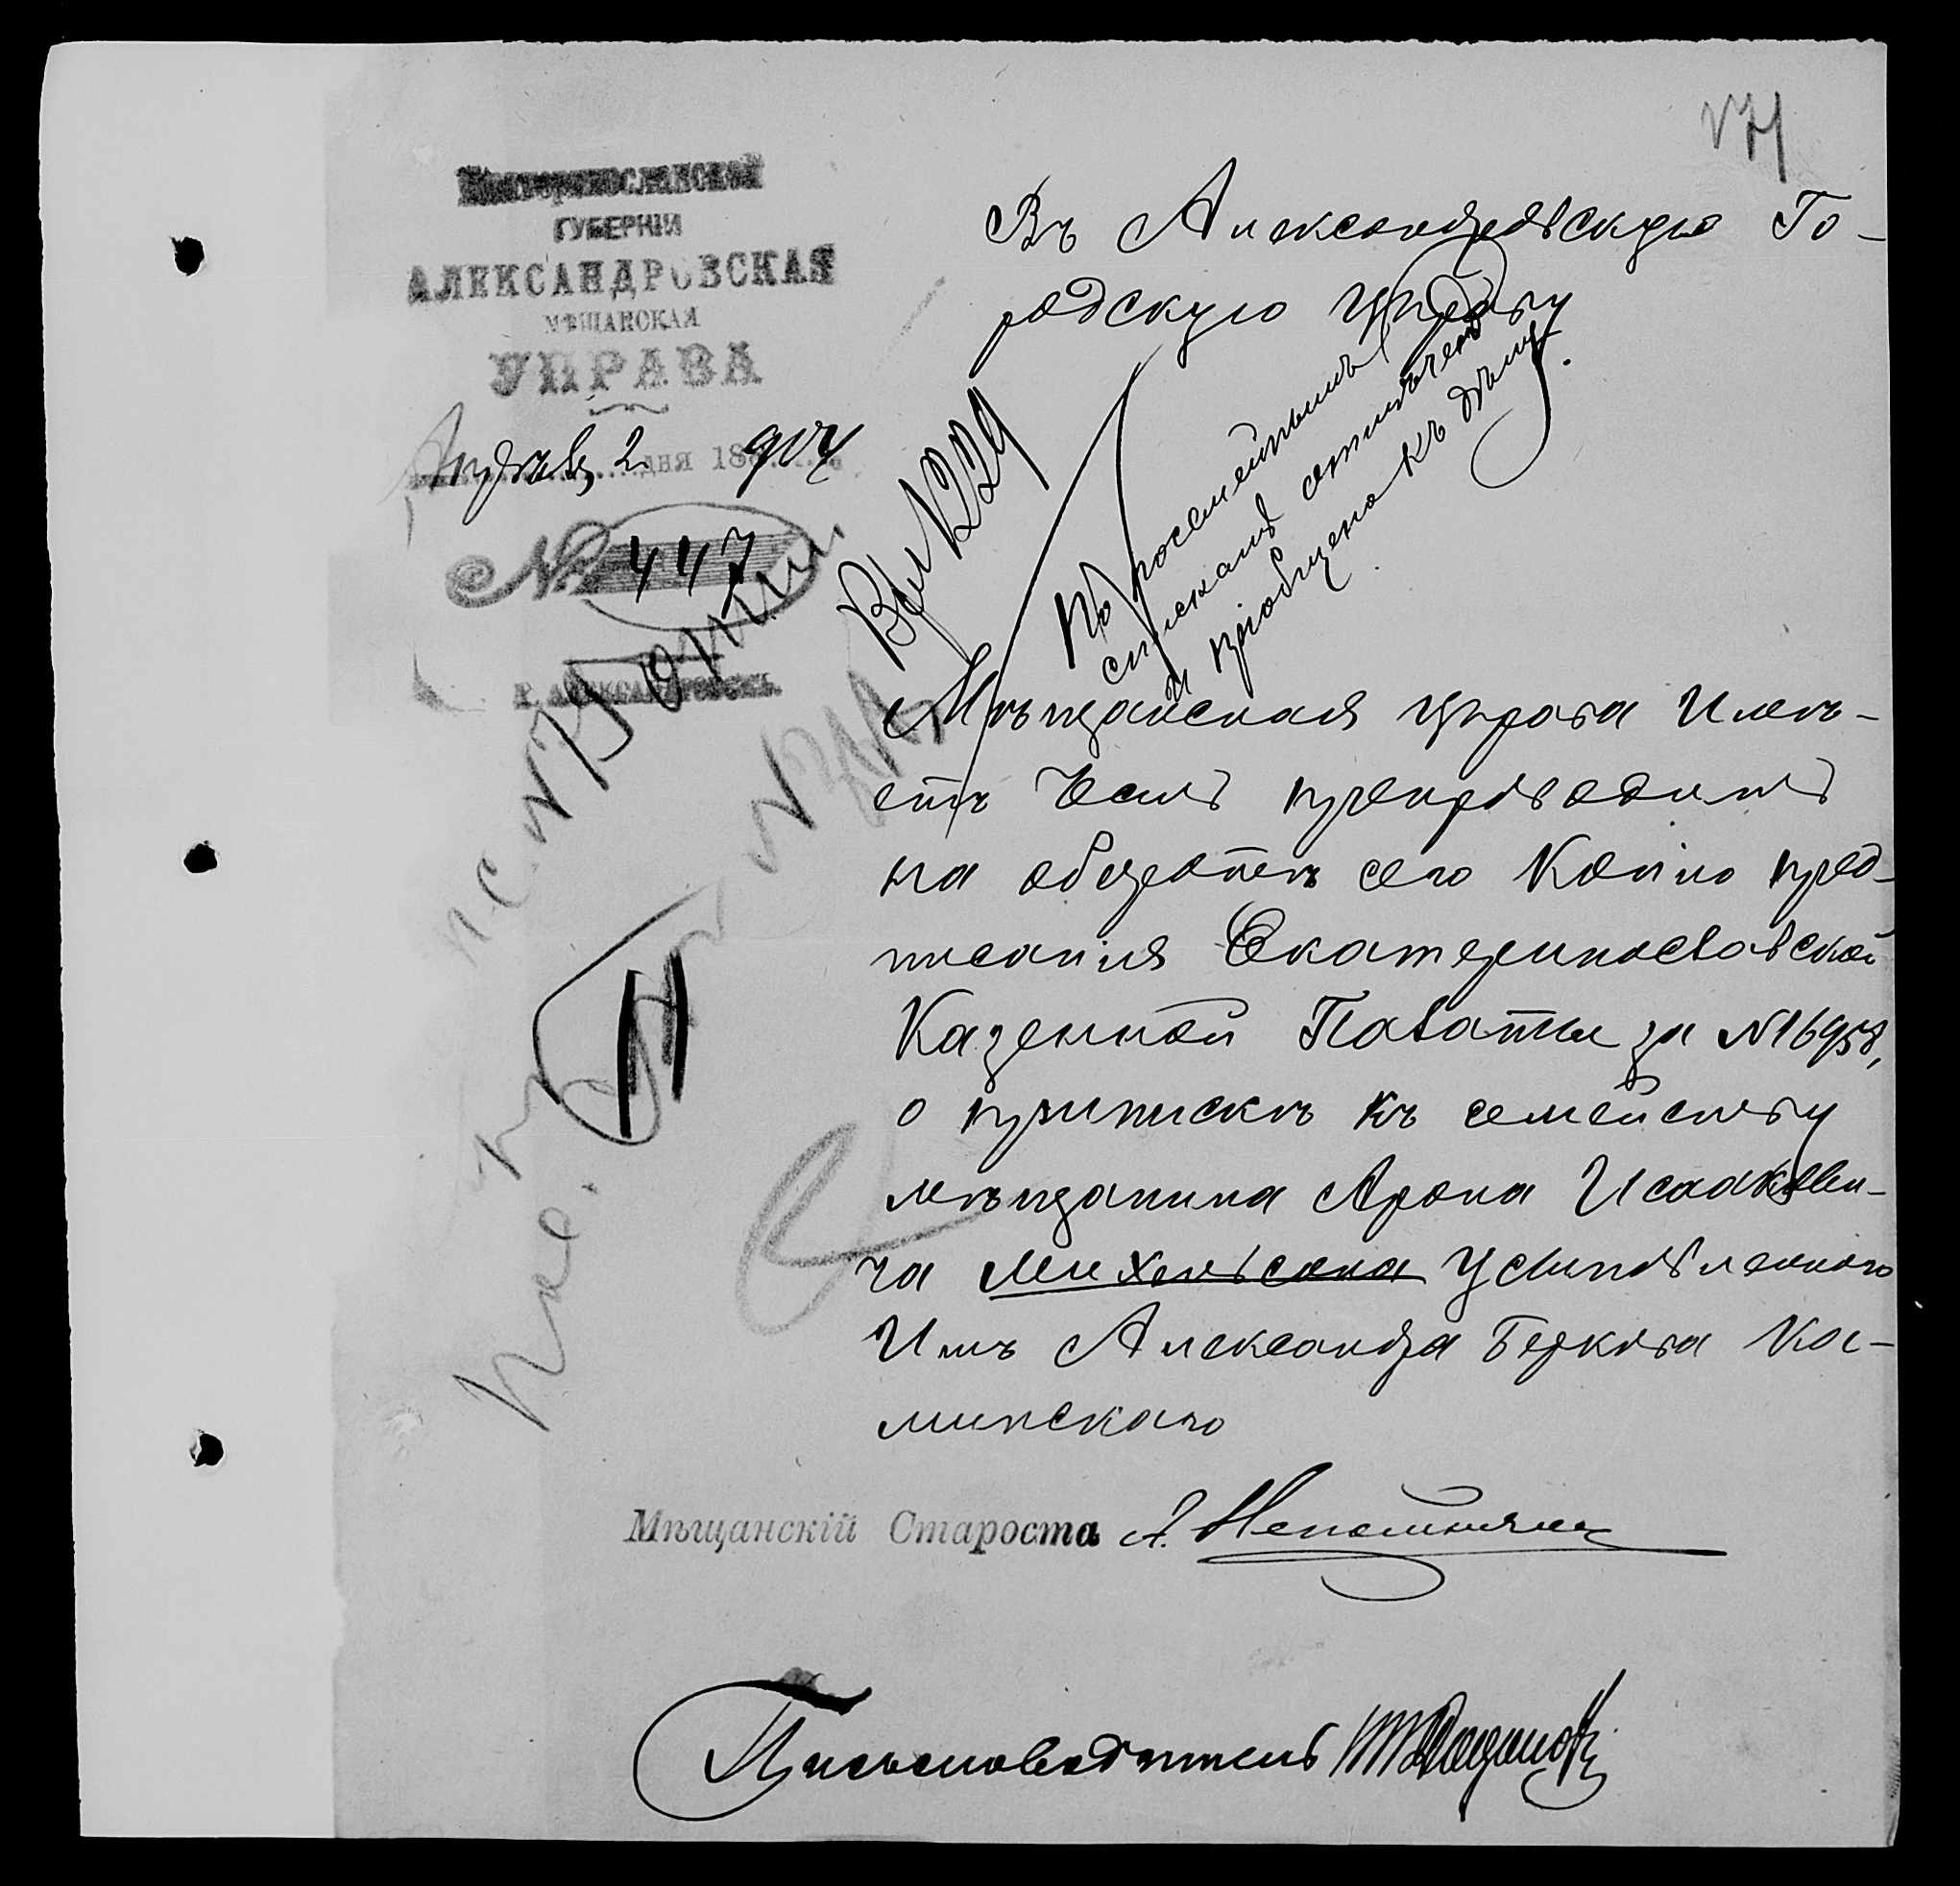 Екатеринославской
ГУБЕРНІИ
АЛЕКСАНДРОВСКАЯ
МѢЩАНСКАЯ
УПРАВА
Апрѣля 2 дня 1904
№ 447
Г. АЛЕКСАНДРОВСКЪ.
Въ Александровскую Го-
родскую Управу
Вх № 1229
По посемейнымъ
спискамъ отмѣчено
и пріобщено къ дѣлу
Мѣщанская управа имѣ-
етъ честь препроводить
на оборотѣ сего копію пред-
писанія Екатеринославской
Казенной Палаты за №16958,
о припискѣ къ семейству
мѣщанина Арона Исаакови-
ча Михельсона усыновленнаго
имъ Александра Беркова Ко-
минскаго
Мѣщанскій Староста
Письмоводитель